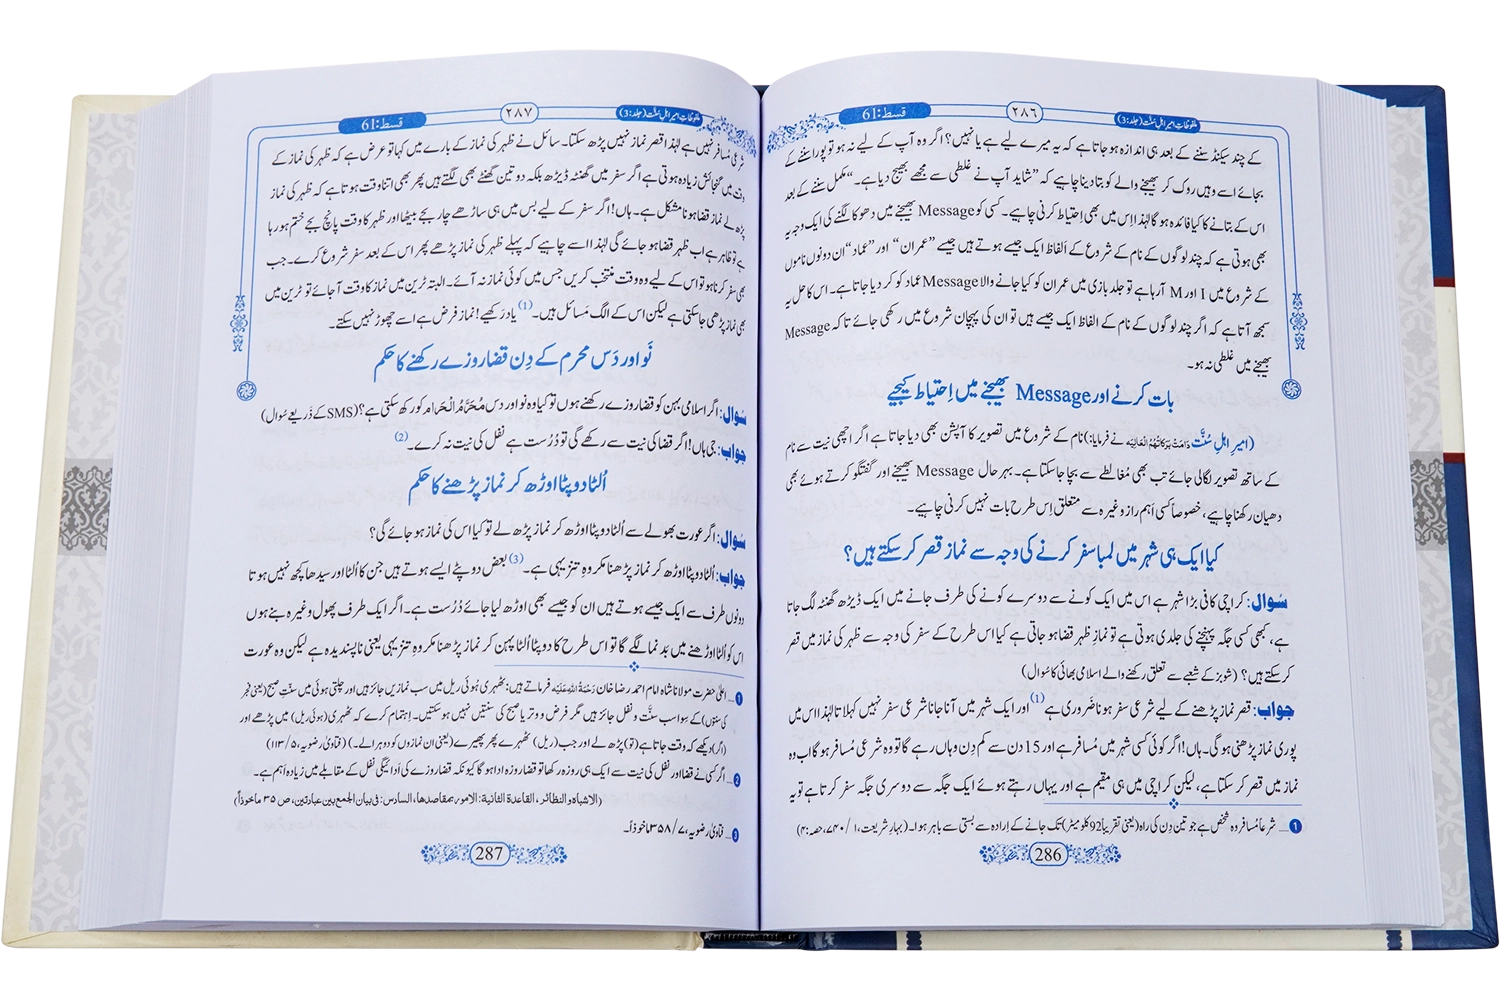 ملفوظاتِ امیرِ اہلِ سنّت (جلد:3)
۲۸۶
قسط:61
کے چند سیکنڈ سننے کے بعد ہی اندازہ ہو جاتا ہے کہ یہ میرے لیے ہے یا نہیں؟ اگر وہ آپ کے لیے نہ ہو تو پورا سننے کے
بجائے اسے وہیں روک کر بھیجنے والے کو بتا دینا چاہیے کہ ”شاید آپ نے غلطی سے مجھے بھیج دیا ہے۔“ مکمل سننے کے بعد
اس کے بتانے کا کیا فائدہ ہو گا لہٰذا اِس میں بھی اِحتیاط کرنی چاہیے۔ کسی کو Message بھیجنے میں دھوکا لگنے کی ایک وجہ یہ
بھی ہوتی ہے کہ چند لوگوں کے نام کے شروع کے اَلفاظ ایک جیسے ہوتے ہیں جیسے ”عمران“ اور ”عماد“ ان دونوں ناموں
کے شروع میں I اور M آرہا ہے تو جلد بازی میں عمران کو کیا جانے والا Message عماد کو کر دیا جاتا ہے۔ اس کا حل یہ
سمجھ آتا ہے کہ اگر چند لوگوں کے نام کے الفاظ ایک جیسے ہیں تو ان کی پہچان شروع میں رکھی جائے تاکہ Message
بھیجنے میں غلطی نہ ہو۔
بات کرنے اور Message بھیجنے میں اِحتیاط کیجیے
(امیرِ اہلِ سُنَّت دَامَتْ بَرَكَاتُهُمُ الْعَالِيَه نے فرمایا:) نام کے شروع میں تصویر کا آپشن بھی دیا جاتا ہے اگر اچھی نیت سے نام
کے ساتھ تصویر لگالی جائے تب بھی مُغالطے سے بچا جاسکتا ہے۔ بہر حال Message بھیجنے اور گفتگو کرتے ہوئے بھی
دھیان رکھنا چاہیے، خصوصاً کسی اَہم راز وغیرہ سے متعلق اِس طرح بات نہیں کرنی چاہیے۔
کیا ایک ہی شہر میں لمبا سفر کرنے کی وجہ سے نماز قصر کر سکتے ہیں؟
سُوال: کراچی کافی بڑا شہر ہے اس میں ایک کونے سے دوسرے کونے کی طرف جانے میں ایک ڈیڑھ گھنٹہ لگ جاتا
ہے، کبھی کسی جگہ پہنچنے کی جلدی ہوتی ہے تو نمازِ ظہر قضا ہو جاتی ہے کیا اس طرح کے سفر کی وجہ سے ظہر کی نماز میں قصر
کرسکتے ہیں؟ (شوبز کے شعبے سے تعلق رکھنے والے اسلامی بھائی کا سُوال)
جواب: قصر نماز پڑھنے کے لیے شرعی سفر ہونا ضَروری ہے (1) اور ایک شہر میں آنا جانا شرعی سفر نہیں کہلاتا لہٰذا اس میں
پوری نماز پڑھنی ہوگی۔ ہاں! اگر کوئی کسی شہر میں مسافر ہے اور 15 دن سے کم دِن وہاں رہے گا تو وہ شرعی مُسافر ہو گا اب وہ
نماز میں قصر کر سکتا ہے، لیکن کراچی میں ہی مقیم ہے اور یہاں رہتے ہوئے ایک جگہ سے دوسری جگہ سفر کرتا ہے تو یہ
1 ... شرعاً مُسافر وہ شخص ہے جو تین دِن کی راہ (یعنی تقریباً 92 کلومیٹر) تک جانے کے اِرادہ سے بستی سے باہر ہوا۔ (بہارِ شریعت، ۱/ ۷۴۰، حصہ: ۴)
286
ملفوظاتِ امیرِ اہلِ سنّت (جلد:3)
۲۸۷
قسط:61
شرعی مُسافر نہیں ہے لہٰذا قصر نماز نہیں پڑھ سکتا۔ سائل نے ظہر کی نماز کے بارے میں کہا تو عرض ہے کہ ظہر کی نماز کے
وقت میں گنجائش زیادہ ہوتی ہے اگر سفر میں گھنٹہ ڈیڑھ بلکہ دو تین گھنٹے بھی لگتے ہیں پھر بھی اتنا وقت ہوتا ہے کہ ظہر کی نماز
پڑھ لے نماز قضا ہونا مشکل ہے۔ ہاں! اگر سفر کے لیے بس میں ہی ساڑھے چار بجے بیٹھا اور ظہر کا وقت پانچ بجے ختم ہو رہا
ہے تو ظاہر ہے اب ظہر قضا ہو جائے گی لہٰذا اسے چاہیے کہ پہلے ظہر کی نماز پڑھے پھر اس کے بعد سفر شروع کرے۔ جب
بھی سفر کرنا ہو تو اس کے لیے وہ وقت منتخب کریں جس میں کوئی نماز نہ آئے۔ البتہ ٹرین میں نماز کا وقت آجائے تو ٹرین میں
بھی نماز پڑھی جاسکتی ہے لیکن اس کے الگ مَسائل ہیں۔ (1) یاد رَکھیے! نماز فرض ہے اسے چھوڑ نہیں سکتے۔
نَو اور دَس محرم کے دِن قضا روزے رکھنے کا حکم
سُوال: اگر اسلامی بہن کو قضا روزے رکھنے ہوں تو کیا وہ نو اور دس مُحَرَّمُ الْحَرام کو رکھ سکتی ہے؟ (SMS کے ذریعے سُوال)
جواب: جی ہاں! اگر قضا کی نیت سے رکھے گی تو دُرُست ہے نفل کی نیت نہ کرے۔ (2)
اُلٹا دوپٹا اوڑھ کر نماز پڑھنے کا حکم
سُوال: اگر عورت بھولے سے اُلٹا دوپٹا اوڑھ کر نماز پڑھ لے تو کیا اس کی نماز ہو جائے گی؟
جواب: اُلٹا دوپٹا اوڑھ کر نماز پڑھنا مکروہِ تنزیہی ہے۔ (3) بعض دوپٹے ایسے ہوتے ہیں جن کا اُلٹا اور سیدھا کچھ نہیں ہوتا
دونوں طرف سے ایک جیسے ہوتے ہیں ان کو جیسے بھی اوڑھ لیا جائے دُرُست ہے۔ اگر ایک طرف پھول وغیرہ بنے ہوں
اس کو اُلٹا اوڑھنے میں بَدنما لگے گا تو اس طرح کا دوپٹا اُلٹا پہن کر نماز پڑھنا مکروہِ تنزیہی یعنی ناپسندیدہ ہے لیکن وہ عورت
1 ... اعلیٰ حضرت مولانا شاہ امام احمد رضا خان رَحْمَةُ اللهِ عَلَيْه فرماتے ہیں: ٹھہری ہُوئی ریل میں سب نمازیں جائز ہیں اور چلتی ہوئی میں سنّتِ صبح (یعنی فجر
کی سنتوں) کے سوا سب سنّت و نفل جائز ہیں مگر فرض و وتر یا صبح کی سنتیں نہیں ہوسکتیں۔ اِہتمام کرے کہ ٹھہری (ہوئی ریل) میں پڑھے اور
(اگر) دیکھے کہ وقت جاتا ہے (تو) پڑھ لے اور جب (ریل) ٹھہرے پھر پھیرے (یعنی ان نمازوں کو دوہرالے)۔ (فتاویٰ رضویہ، ۵/ ۱۱۳)
2 ... اگر کسی نے قضا اور نفل کی نیت سے ایک ہی روزہ رکھا تو قضا روزہ ادا ہو گا کیونکہ قضا روزے کی اَدائیگی نفل کے مقابلے میں زیادہ اَہم ہے۔
(الاشباہ والنظائر، القاعدة الثانية: الامور بمقاصدها، السادس: فی بیان الجمع بین عبادتین، ص ۳۵ ماخوذاً)
3 ... فتاویٰ رضویہ، ۷/ ۳۵۸ ماخوذاً۔
287